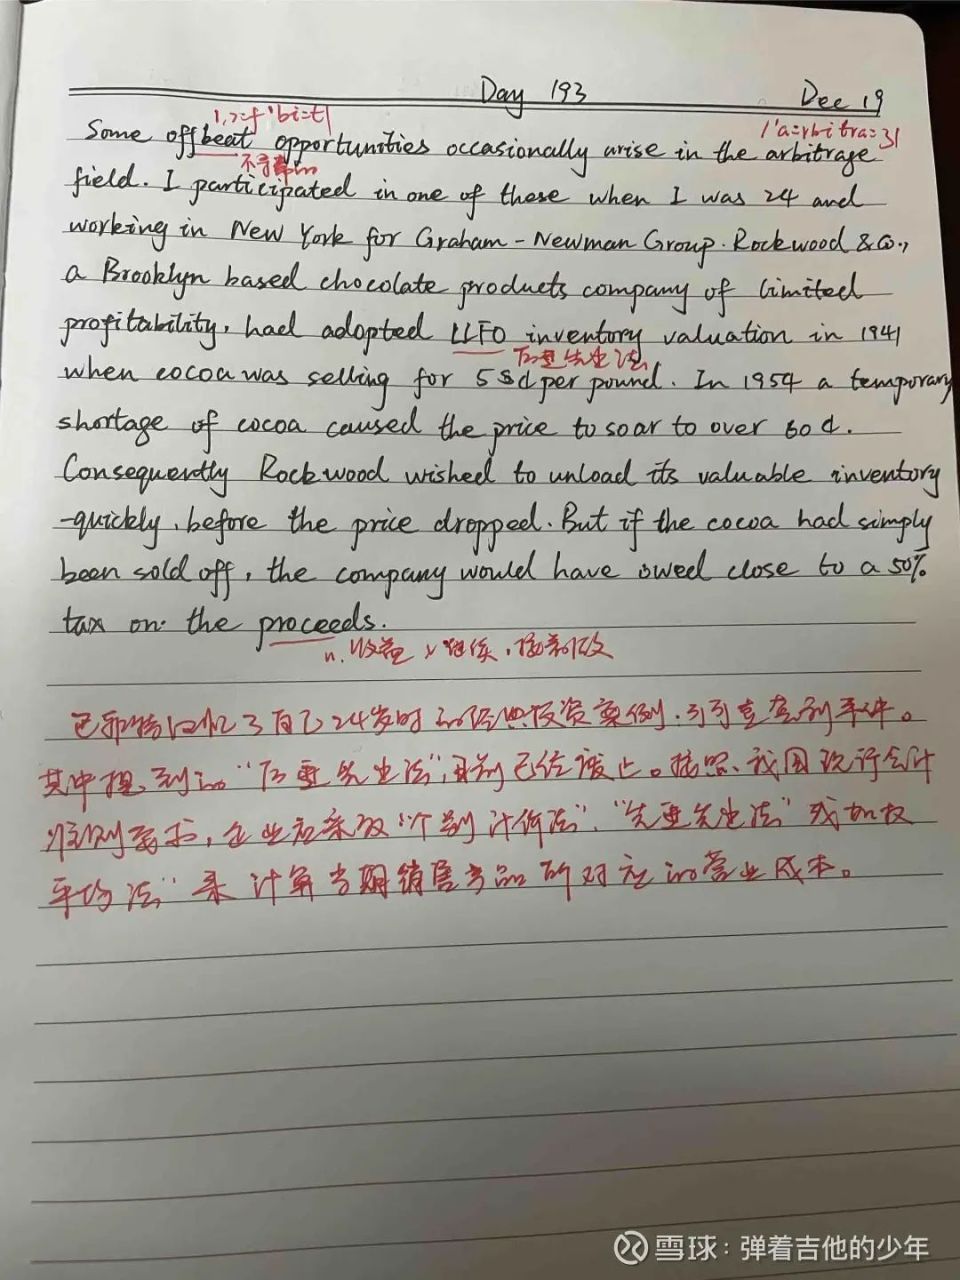 Day 193 Dec 19
Some offbeat opportunities occasionally arise in the arbitrage
不寻常的
field. I participated in one of these when I was 24 and
working in New York for Graham-Newman Group. Rockwood & Co.,
a Brooklyn based chocolate products company of limited
profitability, had adopted LIFO inventory valuation in 1941
后进先出法
when cocoa was selling for 5¢ per pound. In 1954 a temporary
shortage of cocoa caused the price to soar to over 60¢.
Consequently Rockwood wished to unload its valuable inventory
-quickly, before the price dropped. But if the cocoa had simply
been sold off, the company would have owed close to a 50%
tax on the proceeds.
n. 收益 v 继续,
巴菲特回忆了自己24岁时的经典投资案例,可可豆套利事件。
其中提到的“后进先出法”,目前已经废止。按照我国现行会计
准则要求,企业应采取“个别计价法”、“先进先出法”或加权
平均法”来计算当期销售商品所对应的营业成本。
雪球:弹着吉他的少年